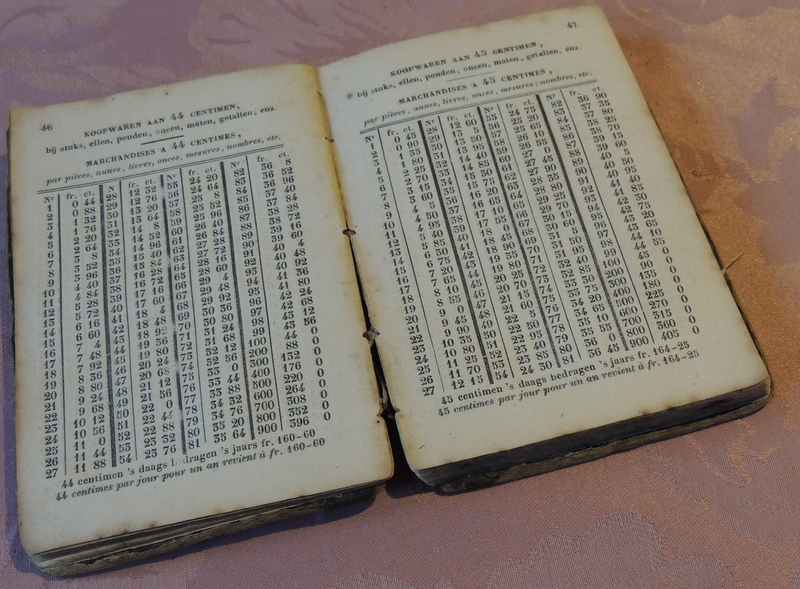 46
KOOPWAREN AAN 44 CENTIMEN,
bij stuks, ellen, ponden, oncen, maten, getallen, enz.
MARCHANDISES A 44 CENTIMES,
par pièces, aunes, livres, onces, mesures, nombres, etc.
Nr fr. ct. N fr. ct. Nr fr. ct. Nr fr. ct.
1 0 44 28 12 32 55 24 20 82 36 8
2 0 88 29 12 76 56 24 64 83 36 52
3 1 32 30 13 20 57 25 8 84 36 96
4 1 76 31 13 64 58 25 52 85 37 40
5 2 20 32 14 8 59 25 96 86 37 84
6 2 64 33 14 52 60 26 40 87 38 28
7 3 8 34 14 96 61 26 84 88 38 72
8 3 52 35 15 40 62 27 28 89 39 16
9 3 96 36 15 84 63 27 72 90 39 60
10 4 40 37 16 28 64 28 16 91 40 4
11 4 84 38 16 72 65 28 60 92 40 48
12 5 28 39 17 16 66 29 4 93 40 92
13 5 72 40 17 60 67 29 48 94 41 36
14 6 16 41 18 4 68 29 92 95 41 80
15 6 60 42 18 48 69 30 36 96 42 24
16 7 4 43 18 92 70 30 80 97 42 68
17 7 48 44 19 36 71 31 24 98 43 12
18 7 92 45 19 80 72 31 68 99 43 56
19 8 36 46 20 24 73 32 12 100 44 0
20 8 80 47 20 68 74 32 56 200 88 0
21 9 24 48 21 12 75 33 0 300 132 0
22 9 68 49 21 56 76 33 44 400 176 0
23 10 12 50 22 0 77 33 88 500 220 0
24 10 56 51 22 44 78 34 32 600 264 0
25 11 0 52 22 88 79 34 76 700 308 0
26 11 44 53 23 32 80 35 20 800 352 0
27 11 88 54 23 76 81 35 64 900 396 0
44 centimen 's daags bedragen 's jaars fr. 160-60
44 centimes par jour pour un an revient à fr. 160-60
47
KOOPWAREN AAN 45 CENTIMEN,
bij stuks, ellen, ponden, oncen, maten, getallen, enz.
MARCHANDISES A 45 CENTIMES,
par pièces, aunes, livres, onces, mesures, nombres, etc.
Nr fr. ct. Nr fr. ct. Nr fr. ct. Nr fr. ct.
1 0 45 28 12 60 55 24 75 82 36 90
2 0 90 29 13 5 56 25 20 83 37 35
3 1 35 30 13 50 57 25 65 84 37 80
4 1 80 31 13 95 58 26 10 85 38 25
5 2 25 32 14 40 59 26 55 86 38 70
6 2 70 33 14 85 60 27 0 87 39 15
7 3 15 34 15 30 61 27 45 88 39 60
8 3 60 35 15 75 62 27 90 89 40 5
9 4 5 36 16 20 63 28 35 90 40 50
10 4 50 37 16 65 64 28 80 91 40 95
11 4 95 38 17 10 65 29 25 92 41 40
12 5 40 39 17 55 66 29 70 93 41 85
13 5 85 40 18 0 67 30 15 94 42 30
14 6 30 41 18 45 68 30 60 95 42 75
15 6 75 42 18 90 69 31 5 96 43 20
16 7 20 43 19 35 70 31 50 97 43 65
17 7 65 44 19 80 71 31 95 98 44 10
18 8 10 45 20 25 72 32 40 99 44 55
19 8 55 46 20 70 73 32 85 100 45 0
20 9 0 47 21 15 74 33 30 200 90 0
21 9 45 48 21 60 75 33 75 300 135 0
22 9 90 49 22 5 76 34 20 400 180 0
23 10 35 50 22 50 77 34 65 500 225 0
24 10 80 51 22 95 78 35 10 600 270 0
25 11 25 52 23 40 79 35 55 700 315 0
26 11 70 53 23 85 80 36 0 800 360 0
27 12 15 54 24 30 81 36 45 900 405 0
45 centimen 's daags bedragen 's jaars fr. 164-25
45 centimes par jour pour un an revient à fr. 164-25